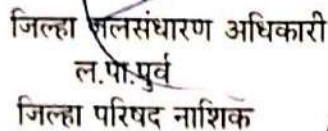 जिल्हा जलसंधारण अधिकारी
ल.पा.पुर्व
जिल्हा परिषद नाशिक